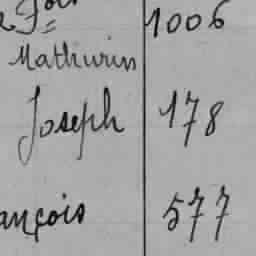 1006
Mathurin
Joseph 178
ançois 577